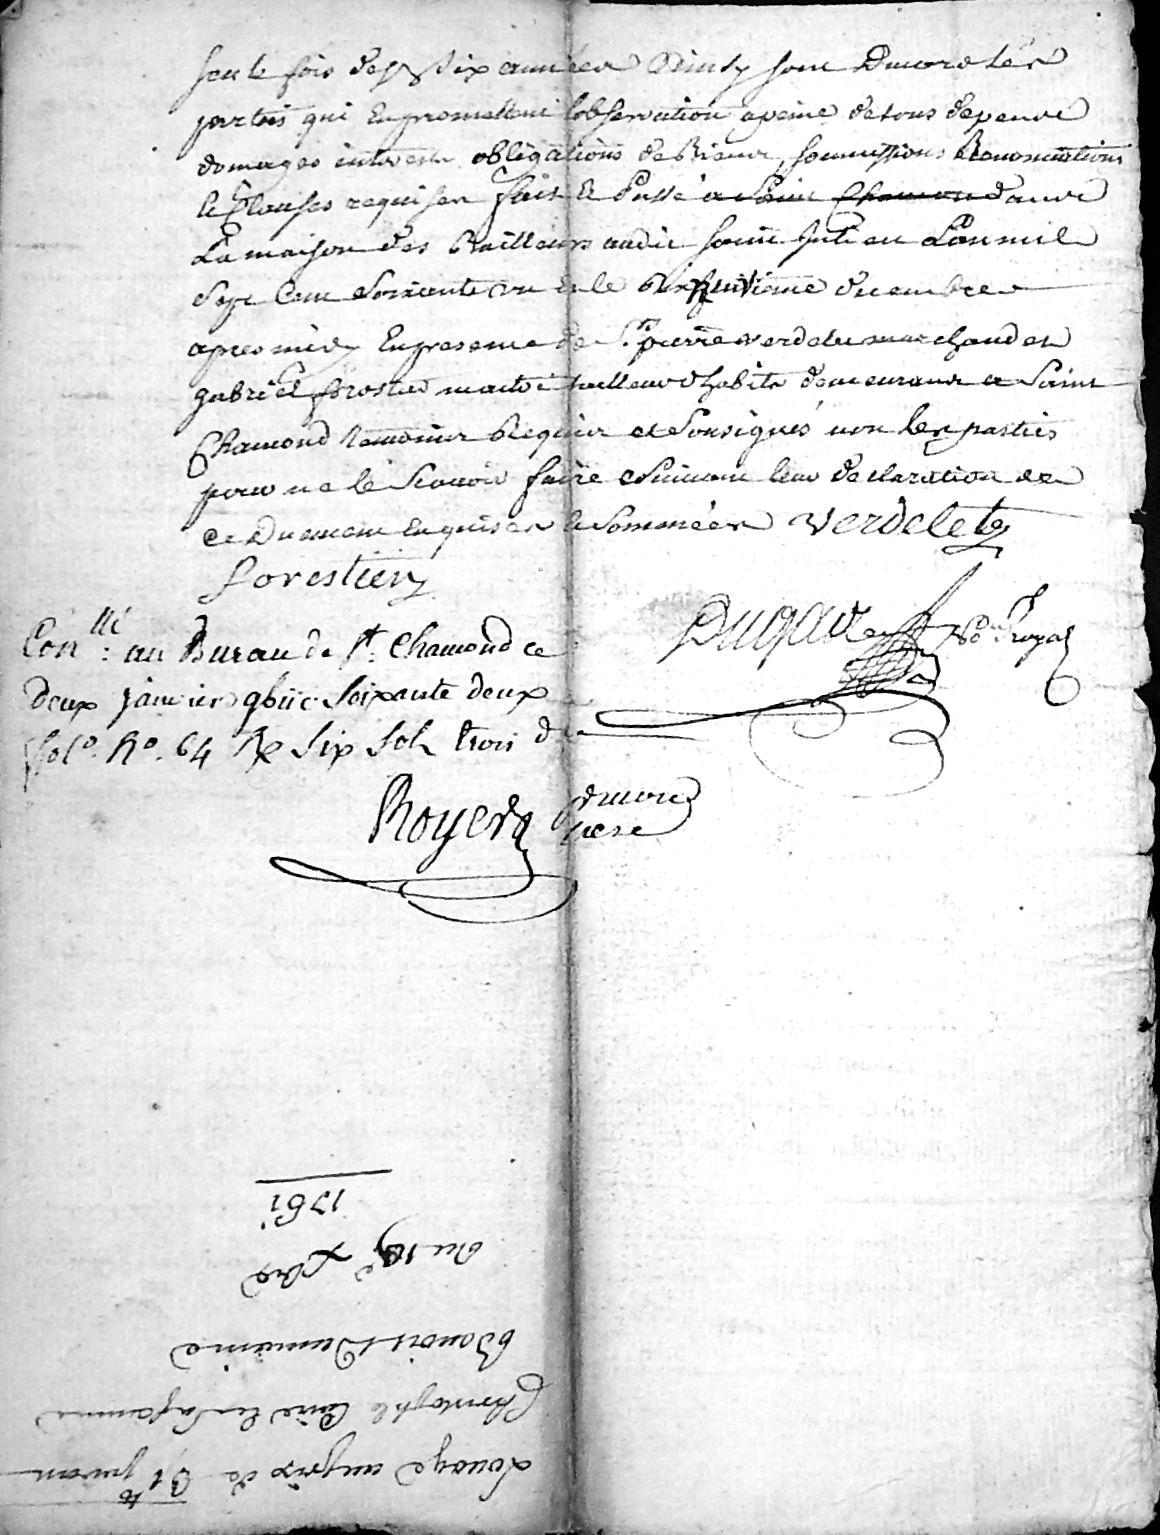 seule fois desd. six années Ainsy sont Daccord les
parties qui En promettent l'observation a peine de tous depens
domages interests obligations de Biens, soumissions Renonciations
& Clauses requises fait & Passé a Saint Chamond dans
La maison des Bailleurs audit Saint Julien L'an mil
Sept Cent Soixante un & le dixhuitieme decembre
apres midy En presence de Sr. pierre verdelet marchand et
gabriel forestier maitre tailleur d'habits demeurant a Saint
Chamond temoins Requis et Soussignés non les parties
pour ne le Scavoir faire Suivant leur declaration de
ce Duement Enquises & Sommées verdelet
forestier
Conllé : au Bureau de St. Chamond ce
deux janvier 17bijc. Soixante deux
fol. Ro. 64 Rx six sols trois d
Dugas Nore Royal
Royer
Louage au prix de 31
Christophle & sa femme
Benoist
du 18e Xbre
1761